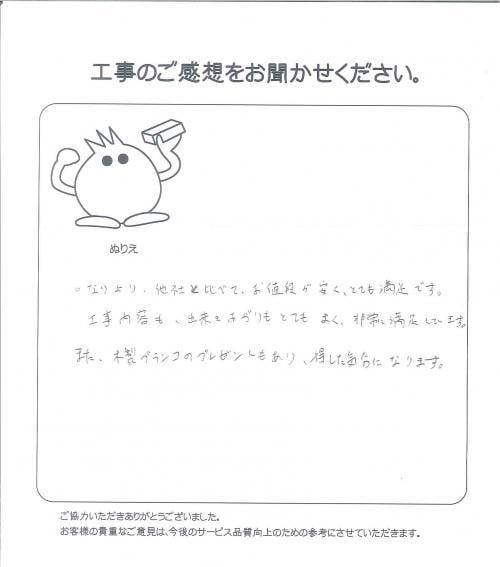 工事のご感想をお聞かせください。
ぬりえ
。なりより、他社と比べて、お値段が安く、とても満足です。
工事内容も、出来上がりもとてもよく、非常に満足しています。
また、木製ベランコのプレゼントもあり、得した気分になります。
ご協力いただきありがとうございました。
お客様の貴重なご意見は、今後のサービス品質向上のための参考にさせていただきます。